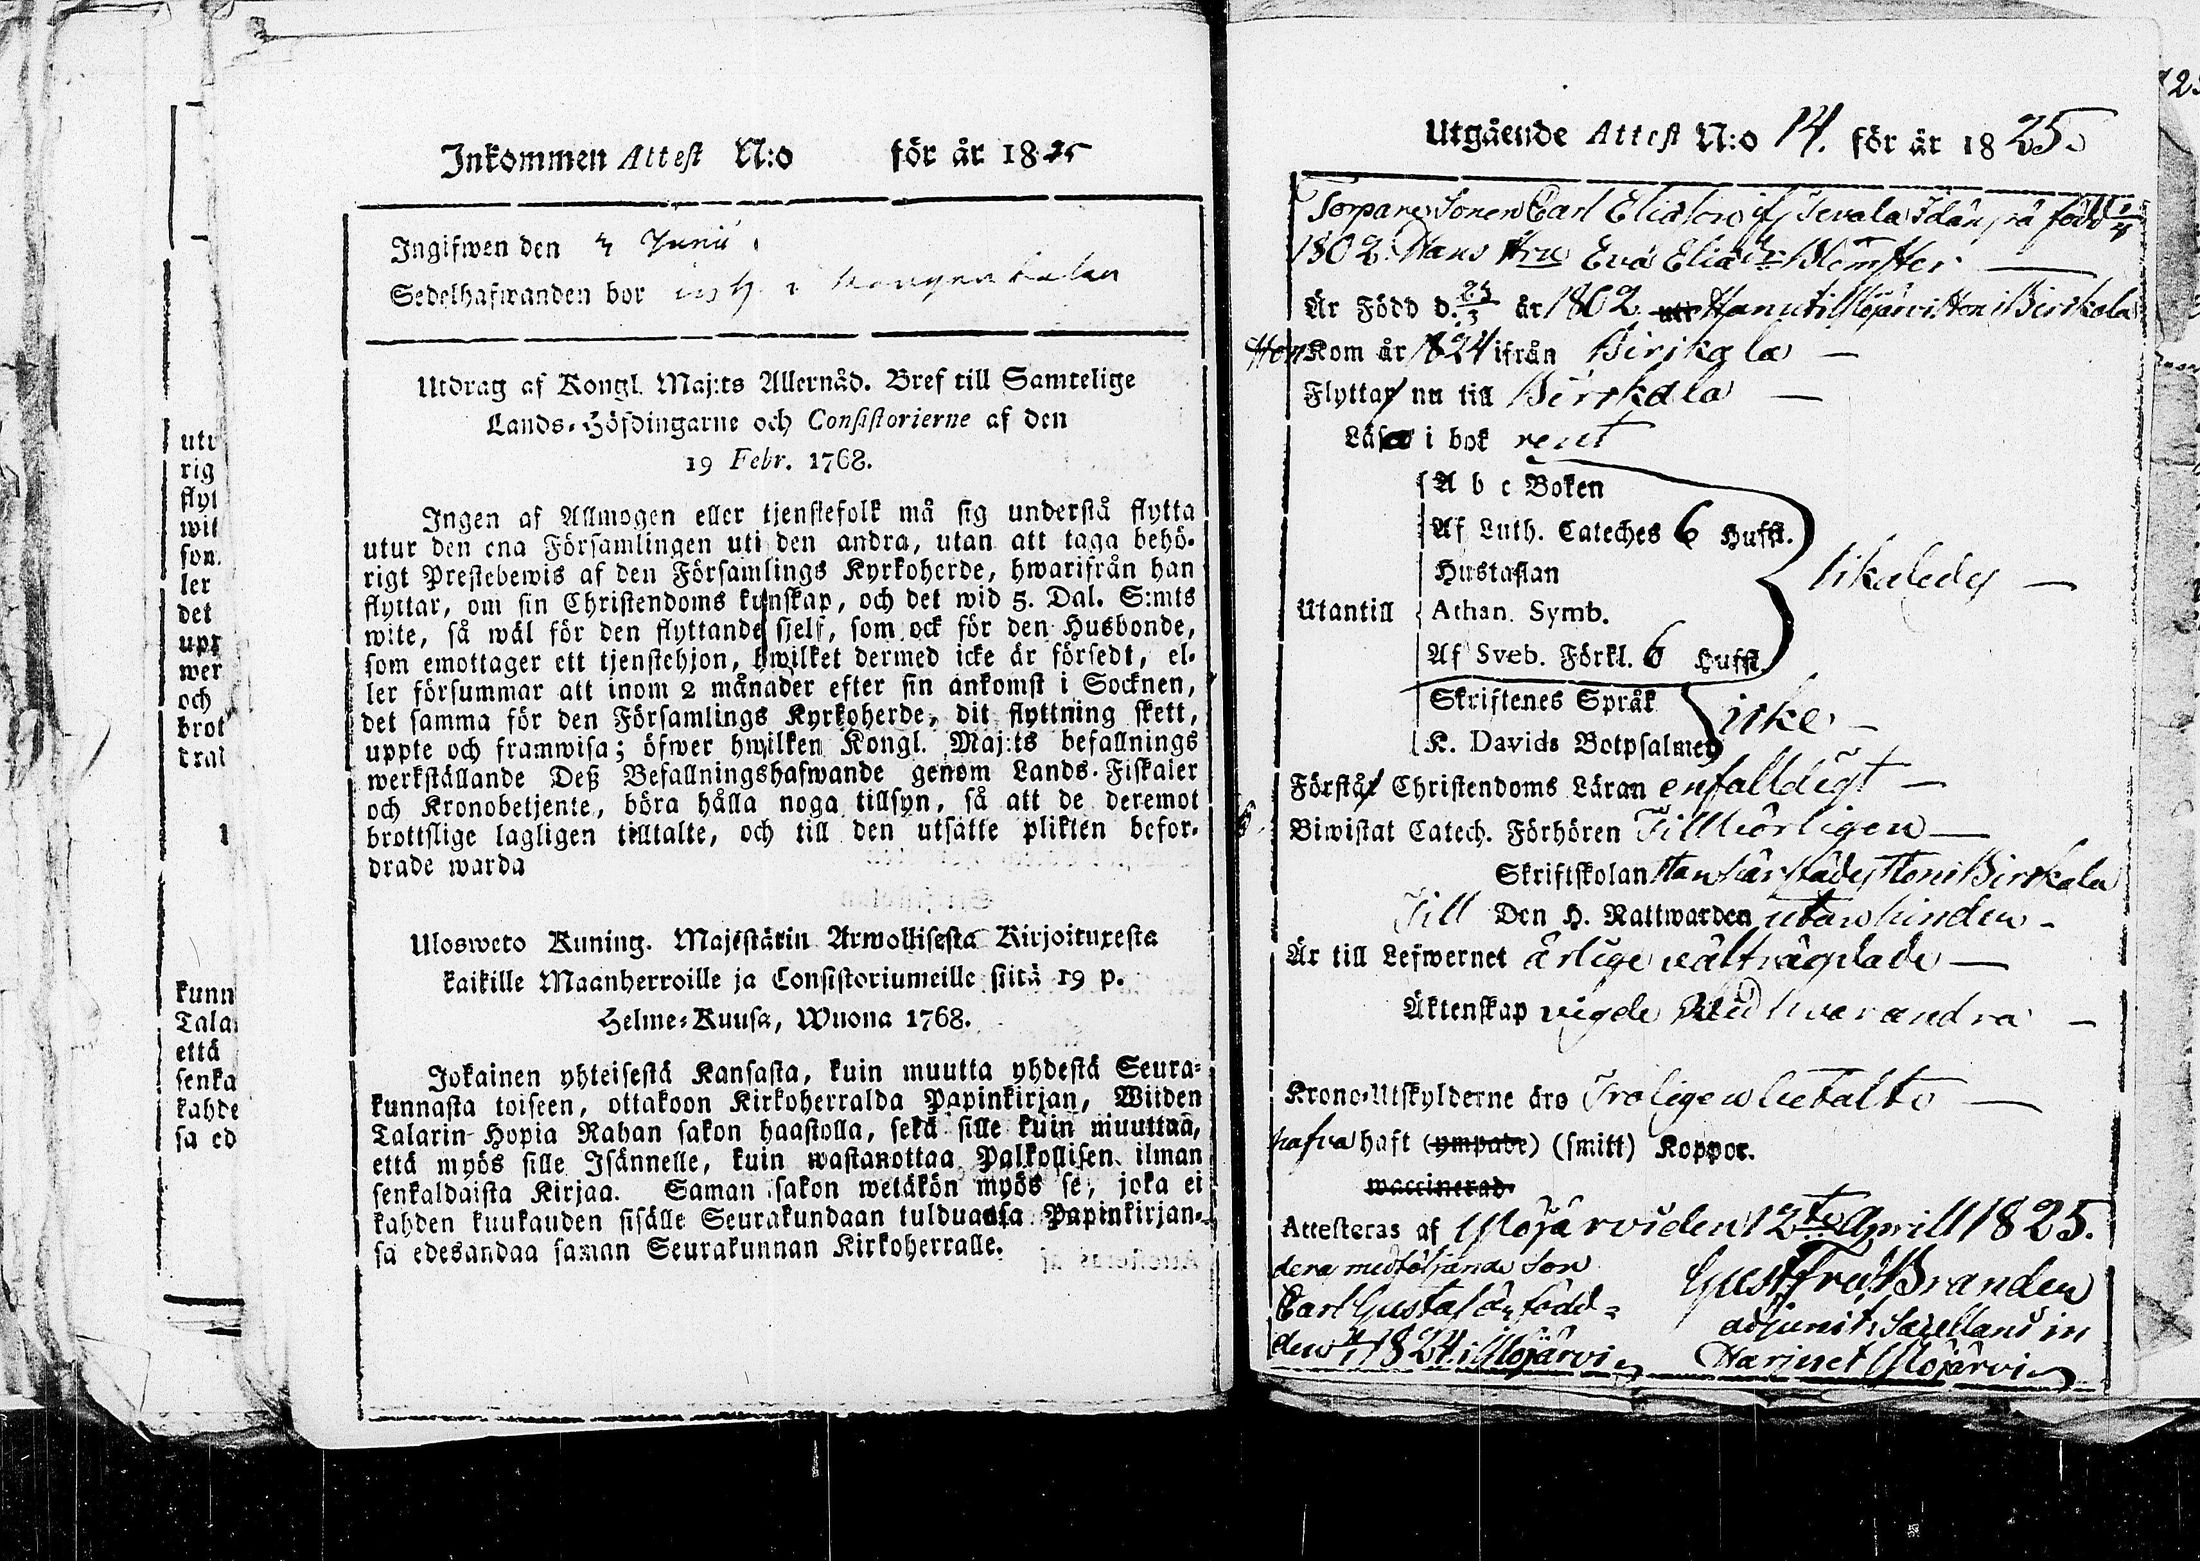 Inkommen Attest N:o för år 1825
Ingifwen den 4 Junii
Sedelhafwanden bor
Utdrag af Kongl. Maj:ts Allernåd. Bref till Samtelige
Lands-Höfdingarne och Consistorierne af den
19 Febr. 1768.
Ingen af Allmogen eller tjenstefolk må sig understå flytta
utur den ena Församlingen uti den andra, utan att taga behö-
rigt Prestebewis af den Församlings Kyrkoherde, hwarifrån han
flyttar, om sin Christendoms kunskap, och det wid 5. Dal. S:mts
wite, så wäl för den flyttande sjelf, som ock för den Husbonde,
som emottager ett tjenstehjon, hwilket dermed icke är försedt, el-
ler försummar att inom 2 månader efter sin ankomst i Socknen,
det samma för den Församlings Kyrkoherde, dit flyttning skett,
uppte och framwisa; öfwer hwilken Kongl. Maj:ts befallnings
werkställande Deß Befallningshafwande genom Lands-Fiskaler
och Kronobetjente, böra hålla noga tillsyn, så att de deremot
brottslige lagligen tilltalte, och till den utsatte plikten befor-
drade warda
Ulosweto Kuning. Majestätin Armollisesta Kirjoituxesta
kaikille Maanherroille ja Consistoriumeille siitä 19 p.
Helme-Kuusa, Wuona 1768.
Jokainen yhteisestä Kansasta, kuin muutta yhdestä Seura-
kunnasta toiseen, ottakoon Kirkoherralda Papinkirjan, Wiiden
Talarin Hopia Rahan sakon haastolla, sekä sille kuin muuttaa,
että myös sille Isännelle, kuin wastanottaa Palkollisen ilman
senkaldaista Kirjaa. Saman sakon wetäkön myös se, joka ei
kahden kuukauden sisälle Seurakundaan tulduansa Papinkirjan-
sa edesandaa saman Seurakunnan Kirkoherralle.
Utgående Attest N:o 14. för år 1825.
Torpare Sonen Carl Eliasson ifr född
1802. Hans Hru Eva Eliae dr Blomster
Är Född d. 25/3 år 1802. Han uti Mojärvi Hon i Birkala
Hon Kom år 1824 ifrån Birjkala
Flyttar nu till Birckala
Läser i bok rent
A b c Boken
Af Luth. Cateches 6 Hufst.
Hustaflan
likaledes
Utantill Athan. Symb.
Af Sveb. Förkl. 6 Hufst.
Skriftenes Språk
icke
K. Davids Botpsalmer
Förstår Christendoms Läran enfalldigt
Biwistat Catech. Förhören Tillbörligen
Skriftskolan Han härstädes Hon i Birckala
Till Den H. Nattwarden utan hinder
Är till Lefwernet ärlige välfrägdade
Äktenskap vigde vid hvarandra
Krono-Utskylderne äro Troligen betalte
hafva haft (ympade) (smitt) Koppor.
waccinerad
Attesteras af Mojärvi den 12te April 1825.
dera medföljande Son
Carl Gustaf är född
den 1824 i Mojärvi
Gust. Fred. Branden
adjunct: Sacelland in
Harjuct Mojärvi